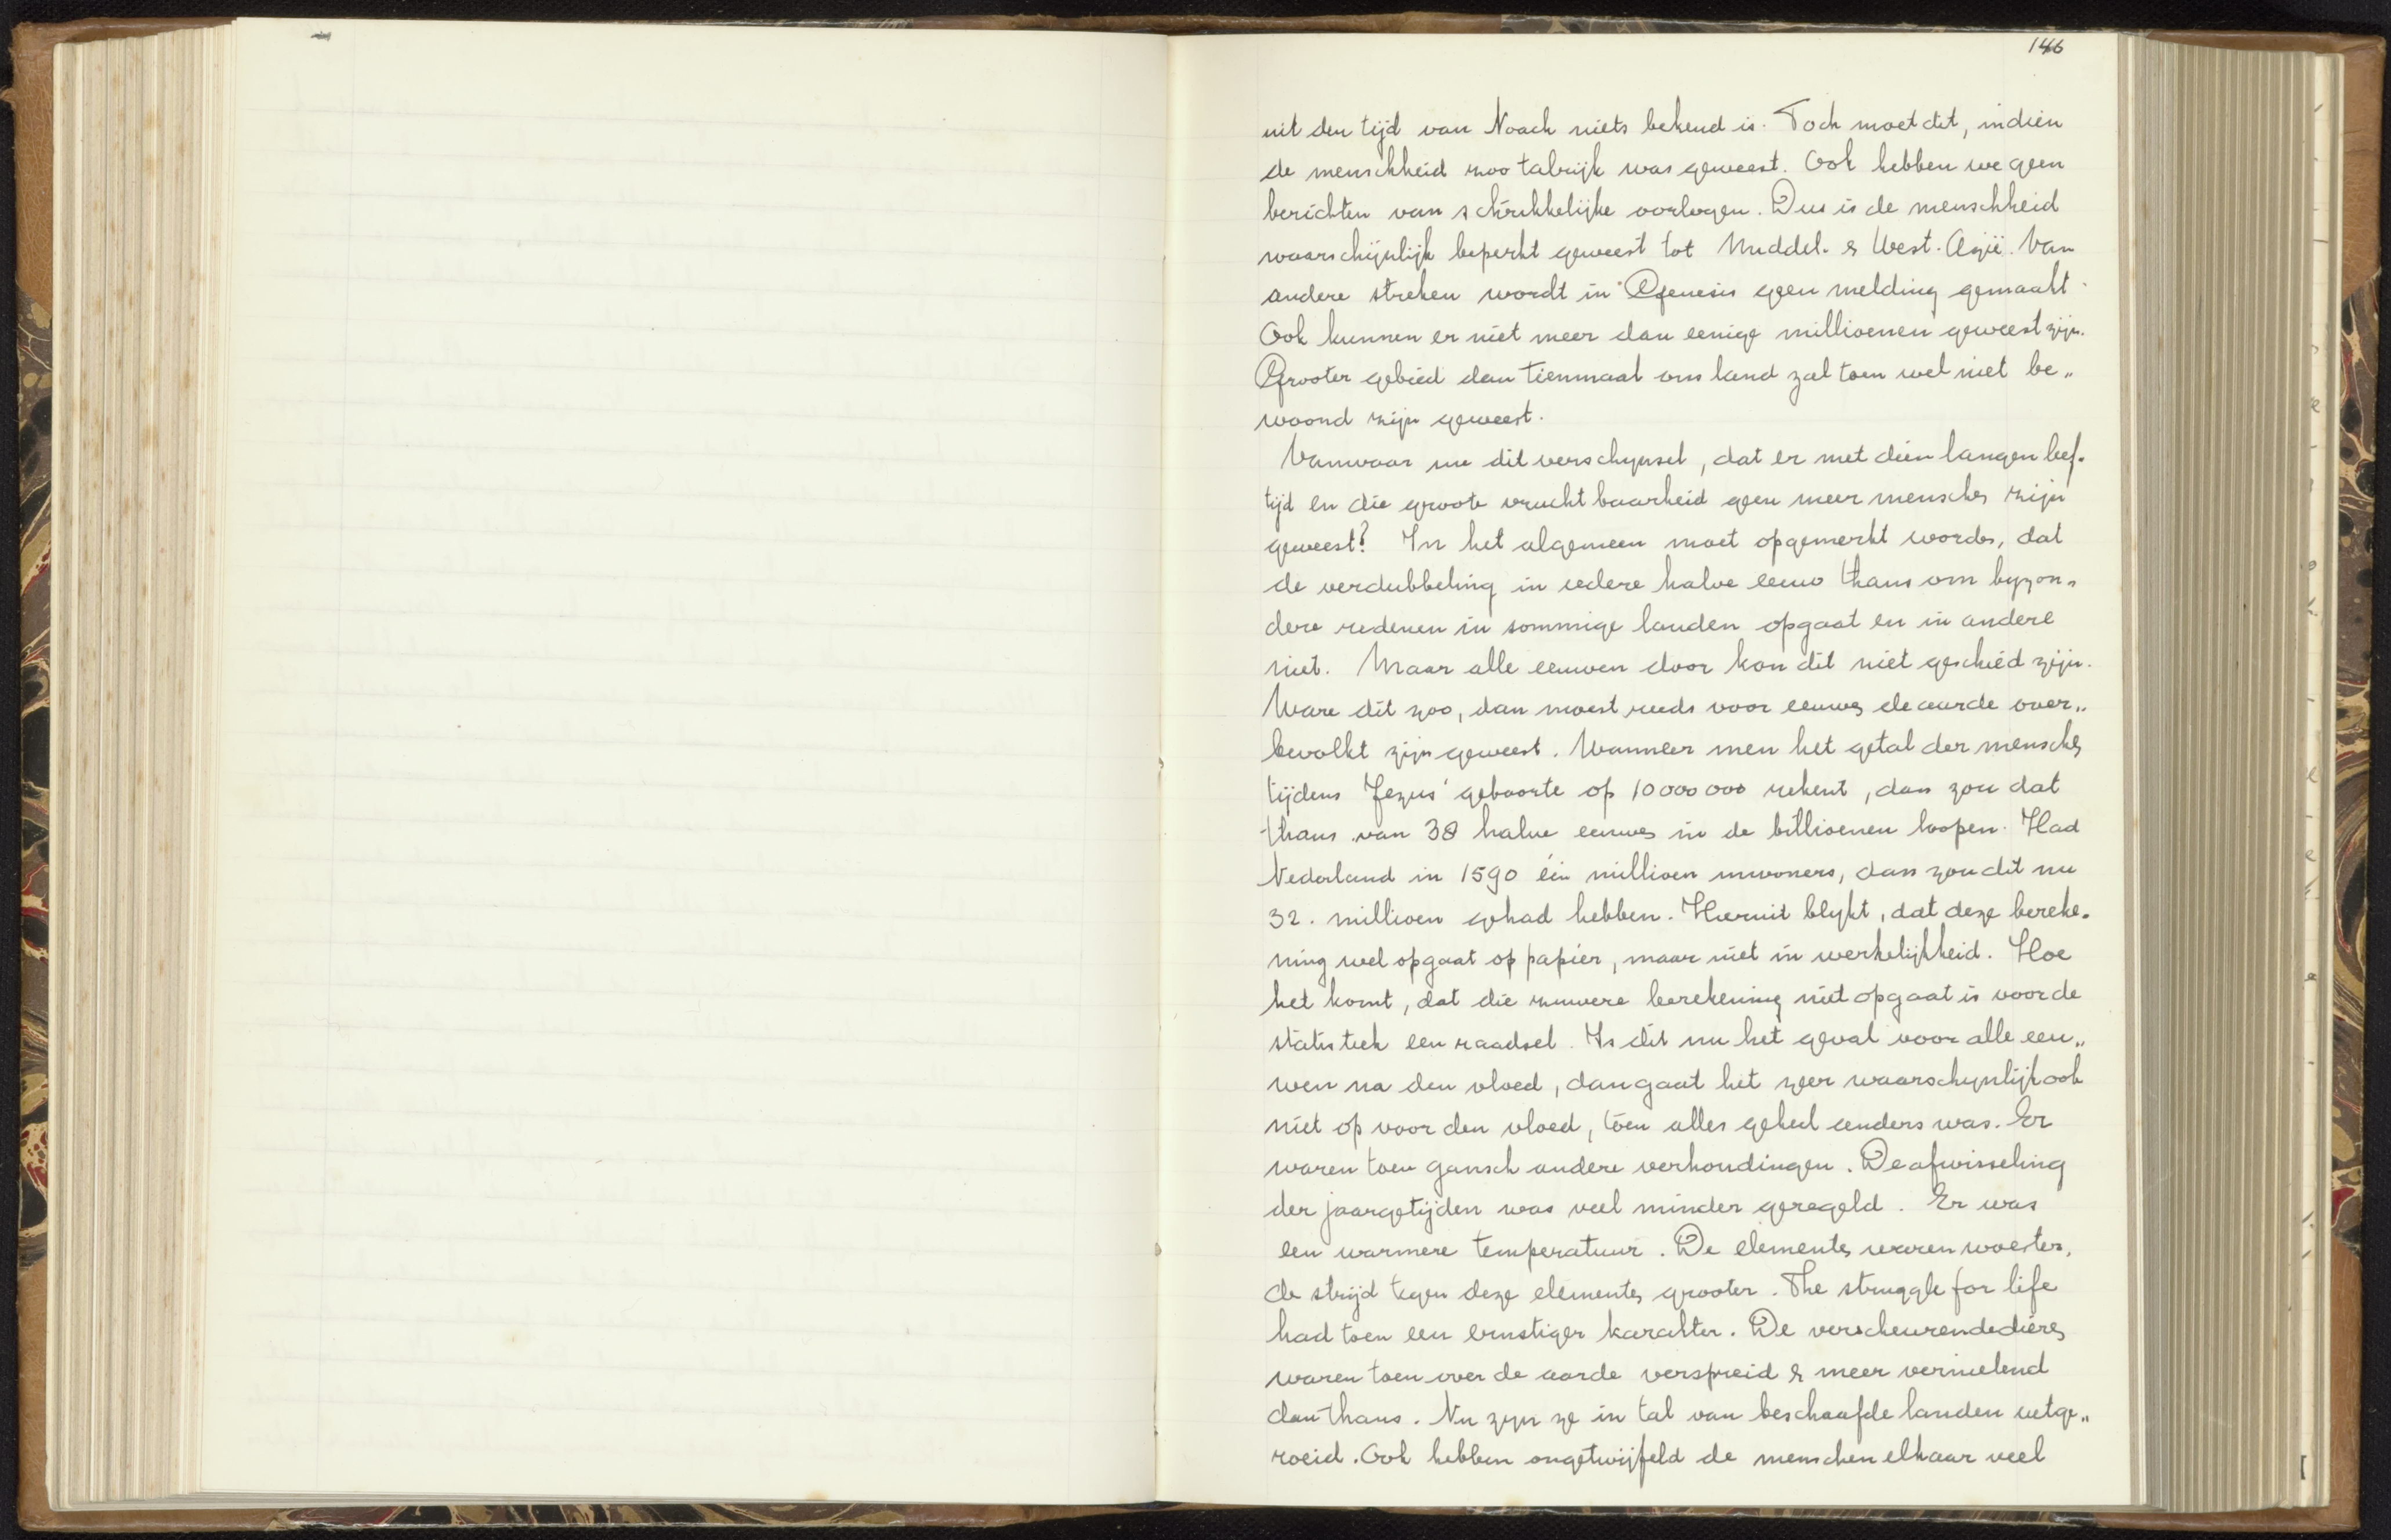 146
uit den tijd van Noach niets bekend is. Toch moet dit, indien
de menschheid zoo talrijk was geweest. Ook hebben we geen
berichten van schrikkelijke oorlogen. Dus is de menschheid
waarschijnlijk beperkt geweest tot Middel- & West-Azië. Van
andere streken wordt in Genesis geen melding gemaakt.
Ook kunnen er niet meer dan eenige millioenen geweest zijn.
Grooter gebied dan tienmaal ons land zal toen wel niet be„
woond zijn geweest.
Vanwaar nu dit verschynsel, dat er met dien langen leef-
tijd en die groote vruchtbaarheid geen meer menschen zijn
geweest? In het algemeen moet opgemerkt worden, dat
de verdubbeling in iedere halve eeuw thans om byzon„
dere redenen in sommige landen opgaat en in andere
niet. Maar alle eeuwen door kon dit niet geschied zijn.
Ware dit zoo, dan moest reeds voor eeuwen de aarde over„
bevolkt zijn geweest. Wanneer men het getal der menschen
tijdens Jezus' geboorte op 10000000 rekent, dan zou dat
thans van 38 halve eeuwen in de billioenen loopen. Had
Nederland in 1590 één millioen inwoners, dan zou dit nu
32. millioen gehad hebben. Hieruit blykt, dat deze bereke-
ning wel opgaat op papier, maar niet in werkelijkheid. Hoe
het komt, dat die zuivere berekening niet opgaat is voor de
statistiek een raadsel. Is dit nu het geval voor alle eeu„
wen na den vloed, dan gaat het zeer waarschynlijk ook
niet op voor den vloed, toen alles geheel anders was. Er
waren toen gansch andere verhoudingen. De afwisseling
der jaargetijden was veel minder geregeld. Er was
een warmere temperatuur. De elementen waren woester,
de strijd tegen deze elementen grooter. The struggle for life
had toen een ernstiger karakter. De verscheurende dieren
waren toen over de aarde verspreid & meer vernielend
dan thans. Nu zyn ze in tal van beschaafde landen uitge„
roeid. Ook hebben ongetwijfeld de menschen elkaar veel